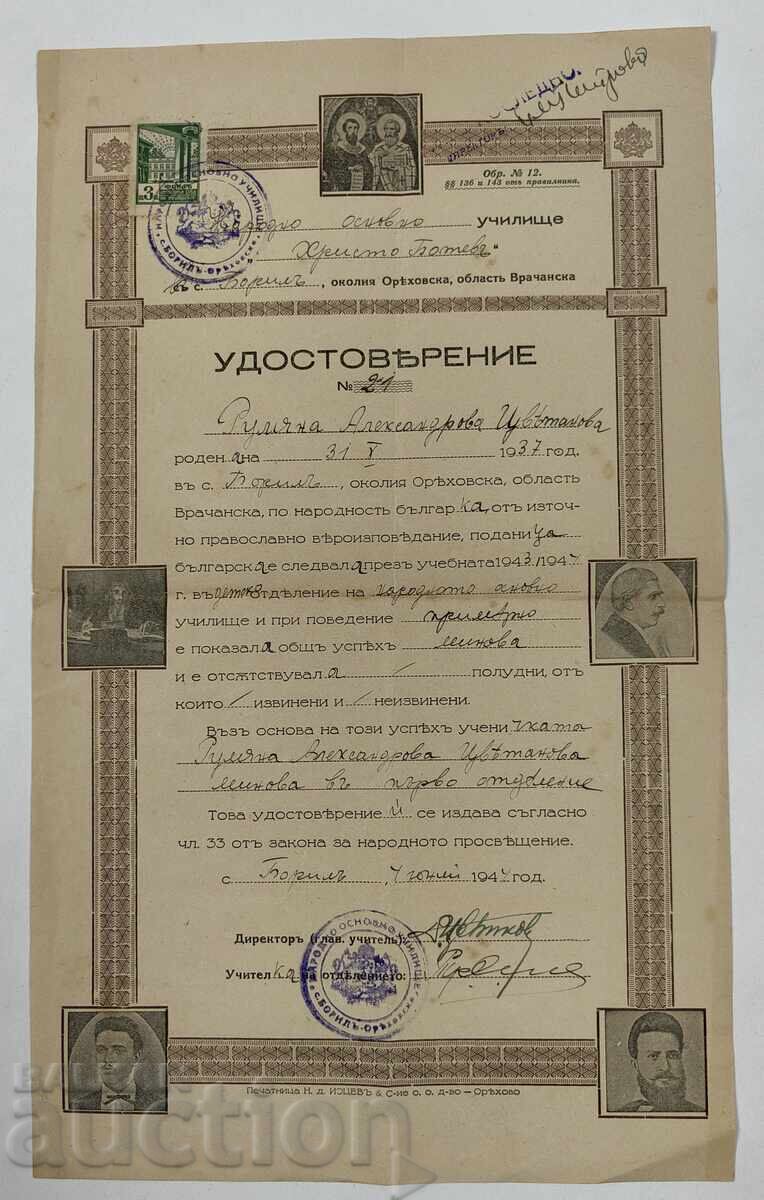 Обр. № 12.
§§ 136 и 143 отъ правилника.
Народно основно училище
„Христо Ботевъ"
въ с. Борилъ, околия Орѣховска, область Врачанска
УДОСТОВѢРЕНИЕ
№ 21
Румяна Александрова Цвѣтанова
родена на 31 V 1937 год.
въ с. Борилъ, околия Орѣховска, область
Врачанска, по народность българка, отъ източ-
но православно вѣроизповѣдание, поданица
българска е следвала презъ учебната 1943/1944
г. въ детско отдѣление на народното основно
училище и при поведение примѣрно
е показала общъ успѣхъ минова
и е отсѫтствувала / полудни, отъ
които / извинени и / неизвинени.
Възъ основа на този успѣхъ ученичката
Румяна Александрова Цвѣтанова
минава въ първо отдѣление
Това удостовѣрение ѝ се издава съгласно
чл. 33 отъ закона за народното просвѣщение.
с Борилъ, 4 юний 1944 год.
Директоръ (глав. учитель): Цвѣтков
Учителка на отдѣлението:
НАРОДНО ОСНОВНО УЧИЛИЩЕ
с. БОРИЛЪ - Орѣховско
Печатница Н. д. ИЗЦЕВЪ & С-ие о. о. д-во — Орѣхово
BALKAN
auction